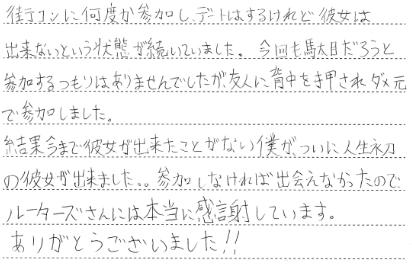 街コンに何度か参加し、デートはするけれど彼女は
出来ないという状態が続いていました。今回も駄目だろうと
参加するつもりはありませんでしたが友人に背中を押されダメ元
で参加しました。
結果今まで彼女が出来たことがない僕が、ついに人生初
の彼女が出来ました。。参加しなければ出会えなかったので
ルーターズさんには本当に感謝しています。
ありがとうございました!!